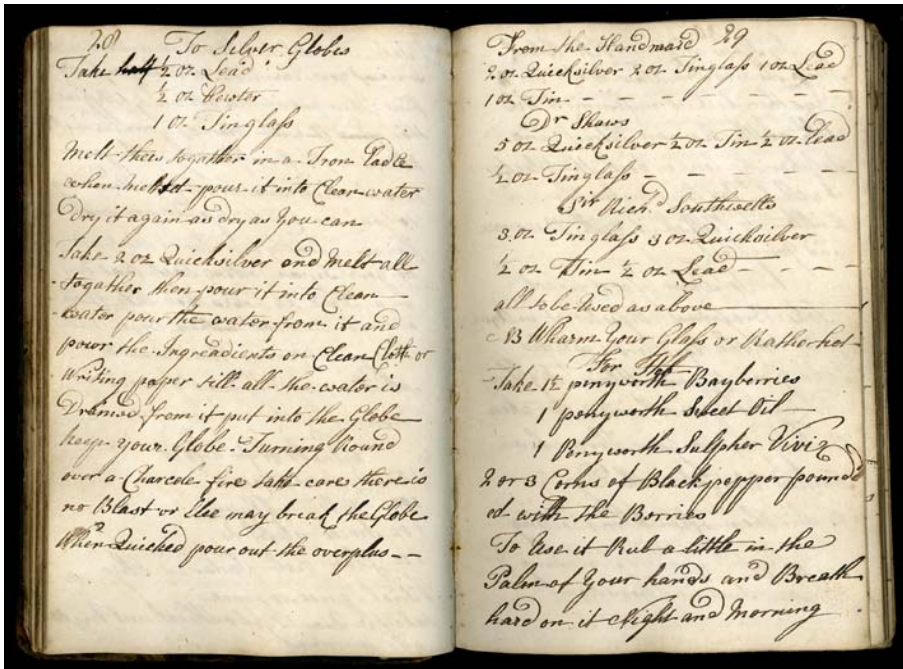 28
To Silver Globes
Take half ½ oz Lead
½ oz Pewter
1 oz Tinglass
Melt these togather in a Iron Ladle
when melted pour it into Clean water
Dry it again as dry as You can
Take 2 oz Quicksilver and Melt all
togather then pour it into Clean
water pour the water from it and
pour the Ingreadients on Clean Cloth or
Writing paper till all the water is
Drained from it put into the Globe
keep your Globe Turning Round
over a Charcole fire take care there is
no Blast or Else may break the Globe
When Quicked pour out the overplus - -
29
From the Handmaid
2 oz Quicksilver 2 oz Tinglass 1 oz Lead
1 oz Tin - - - - - -
Dr Shaws
5 oz Quicksilver ½ oz Tin ½ oz Lead
½ oz Tinglass - - - - - -
Sir Richd Southwells
3 oz Tinglass 3 oz Quicksilver
½ oz Tin ½ oz Lead - - - -
all to be Used as above
B Wharm Your Glass or Rather hot
For
Take 1½ penyworth Bayberries
1 penyworth Sweet Oil
1 Penyworth Sulpher Viviz
2 or 3 Corns of Black pepper pound
ed with the Berries
To Use it Rub a little in the
Palm of Your hands and Breath
hard on it Night and Morning